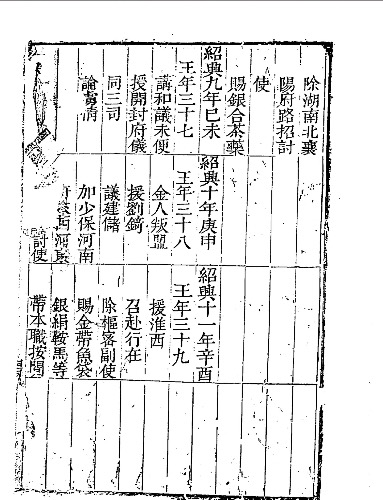 除湖南北襄
陽府路招討
使
賜銀合茶藥
紹興九年巳未
王年三十七
講和議未便
授開封府儀
同三司
諭虜情
紹興十年庚申
王年三十八
金人叛盟
援劉錡
議建儲
加少保河南
府陜西河東
討使
紹興十一年辛酉
王年三十九
援淮西
召赴行在
除樞密副使
賜金帶魚袋
銀絹鞍馬等
帶本職按閱